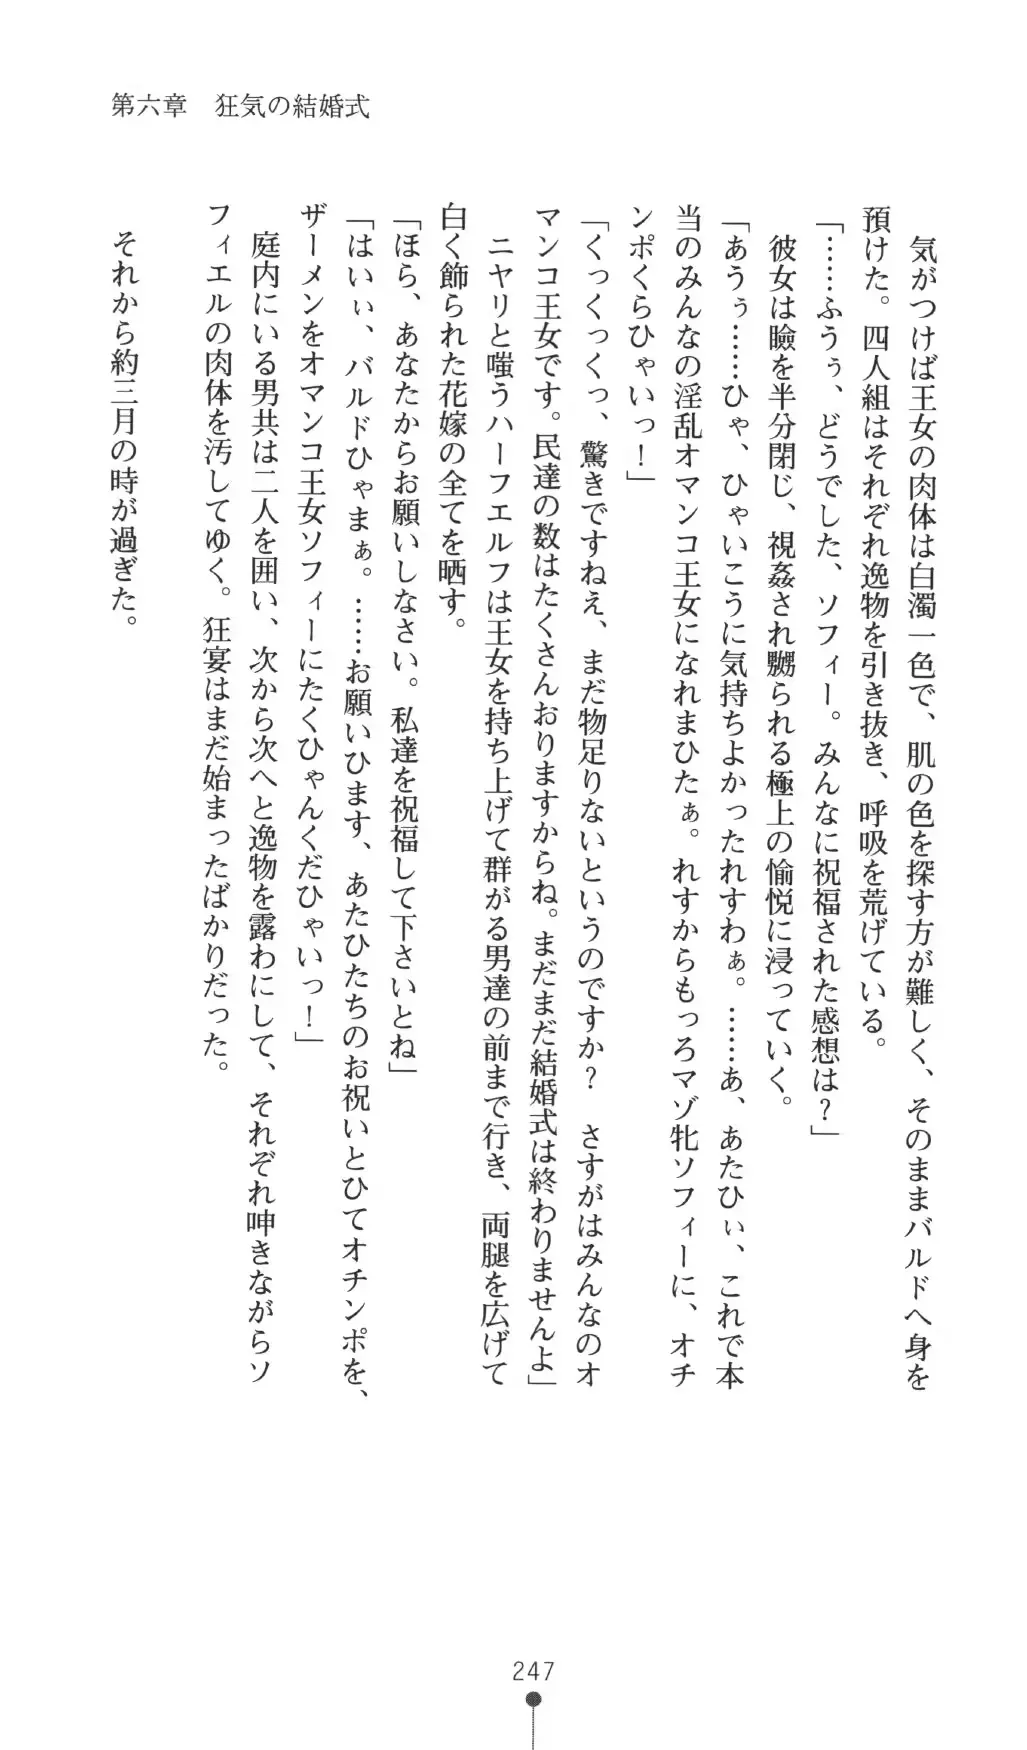 第六章　狂気の結婚式
　気がつけば王女の肉体は白濁一色で、肌の色を探す方が難しく、そのままバルドへ身を
預けた。四人組はそれぞれ逸物を引き抜き、呼吸を荒げている。
「……ふうぅ、どうでした、ソフィー。みんなに祝福された感想は？」
　彼女は瞼を半分閉じ、視姦され嬲られる極上の愉悦に浸っていく。
「あうぅ……ひゃ、ひゃいこうに気持ちよかったれすわぁ。……あ、あたひぃ、これで本
当のみんなの淫乱オマンコ王女になれまひたぁ。れすからもっろマゾ牝ソフィーに、オチ
ンポくらひゃいっ！」
「くっくっくっ、驚きですねえ、まだ物足りないというのですか？　さすがはみんなのオ
マンコ王女です。民達の数はたくさんおりますからね。まだまだ結婚式は終わりませんよ」
　ニヤリと嗤うハーフエルフは王女を持ち上げて群がる男達の前まで行き、両腿を広げて
白く飾られた花嫁の全てを晒す。
「ほら、あなたからお願いしなさい。私達を祝福して下さいとね」
「はいぃ、バルドひゃまぁ。……お願いひます、あたひたちのお祝いとひてオチンポを、
ザーメンをオマンコ王女ソフィーにたくひゃんくだひゃいっ！」
　庭内にいる男共は二人を囲い、次から次へと逸物を露わにして、それぞれ呻きながらソ
フィエルの肉体を汚してゆく。狂宴はまだ始まったばかりだった。
　それから約三月の時が過ぎた。
247